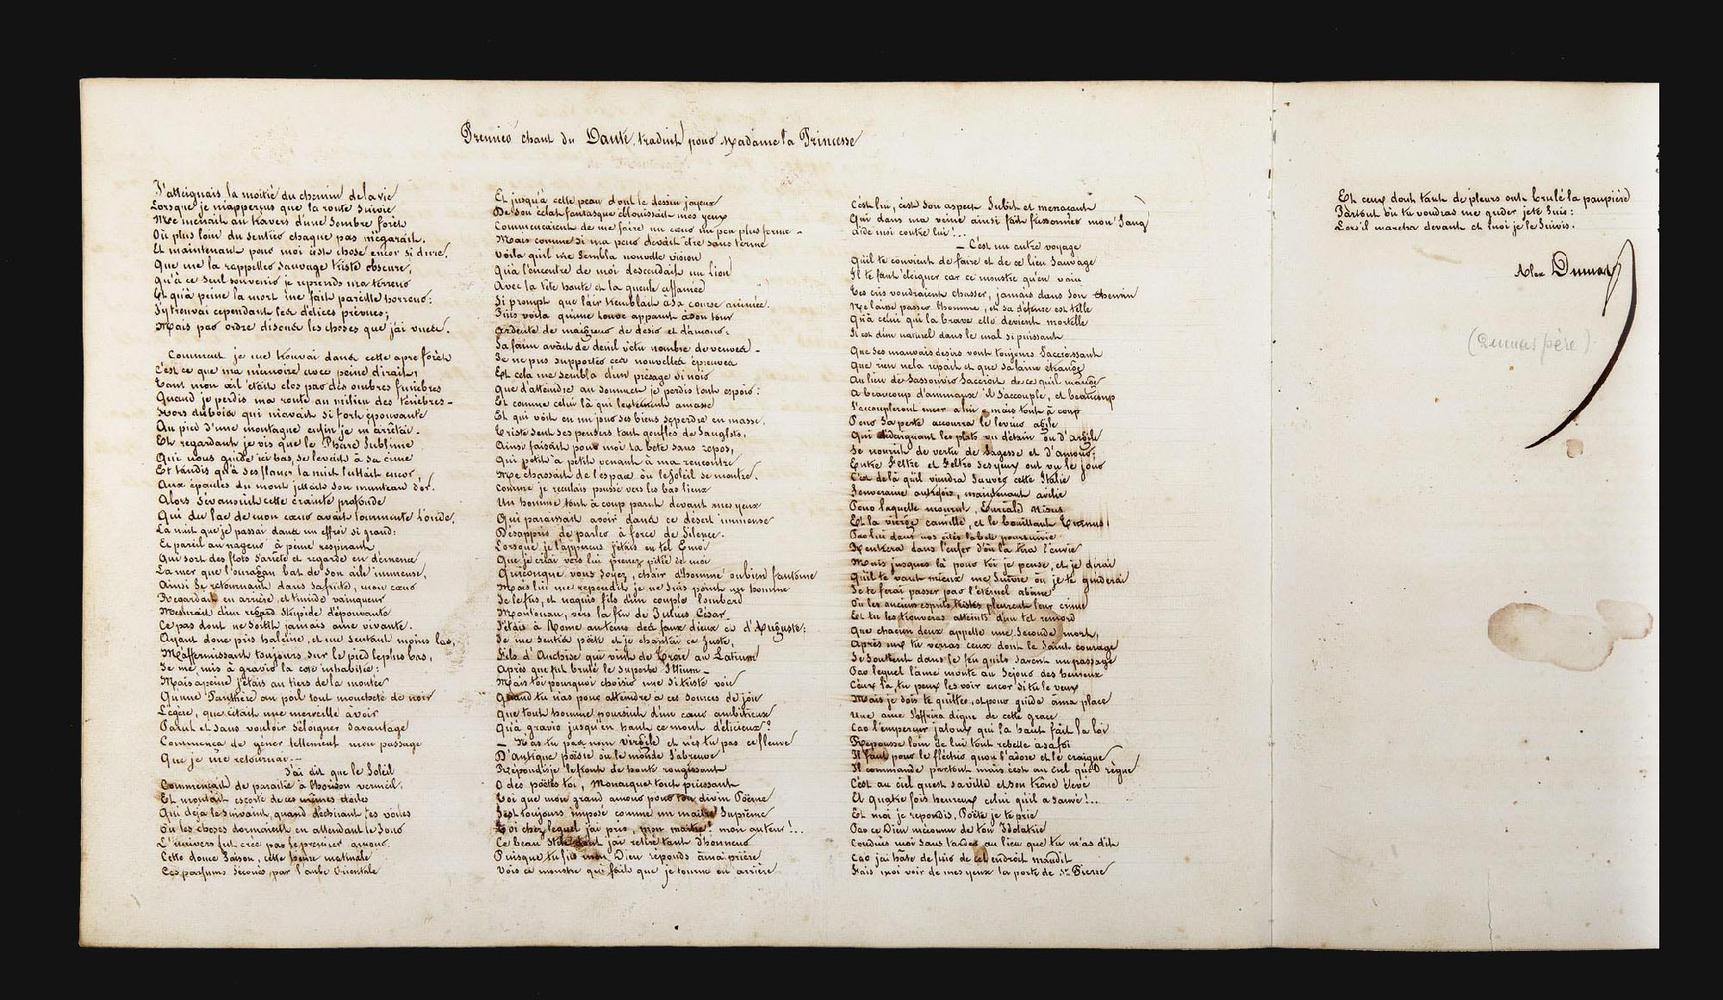 Premier chant du Dante, traduit pour Madame la Princesse
J'atteignais la moitié du chemin de la vie
Lorsque je m'apperçus que la route suivie
Me menait au travers d'une sombre forêt
Où plus loin du sentier chaque pas m'égarait.
Et maintenant pour moi c'est chose encor si dure,
Que me la rappeller sauvage triste obscure,
Qu'à ce seul souvenir je reprends ma terreur
Et qu'à peine la mort me fait pareille horreur:
J'y trouvai cependant les délices prévues;
Mais par ordre disons les choses que j'ai vues.
Comment je me trouvai dans cette apre forêt
C'est ce que ma mémoire avec peine dirait,
Tant mon œil était clos par des ombres funèbres
Quand je perdis ma route au milieu des ténèbres -
Hors du bois qui m'avait si fort épouvanté
Au pied d'une montagne enfin je m'arrêtai.
Et regardant je vis que le Phare sublime
Qui nous guide ici bas, se levait à sa cime
Et tandis qu'à ses flancs la nuit luttait encor,
Aux épaules du mont jettait son manteau d'or.
Alors s'évanouit cette crainte profonde
Qui du lac de mon cœur avait tourmenté l'onde,
La nuit que je passai dans un effroi si grand:
Et pareil au nageur à peine respirant
Qui sort des flots s'arrête et regarde en démence
La mer que l'ouragan bat de son aile immense,
Ainsi se retournant dans sa fuite, mon cœur
Regardait en arrière, et timide vainqueur
Mesurait d'un regard stupide d'épouvante
Ce pas dont ne sortit jamais ame vivante.
Ayant donc pris haleine, et me sentant moins las,
M'affermissant toujours sur le pied le plus bas,
Je me mis à gravir la cote inhabitée:
Mais à peine j'étais au tiers de la montée
Qu'une Panthère au poil tout moucheté de noir
Légère, que c'était une merveille à voir
Parut et sans vouloir s'éloigner davantage
Commença de gêner tellement mon passage
Que je me retournai. --
J'ai dit que le Soleil
Commençait de paraître à l'horizon vermeil.
Et montait escorté de ces mêmes étoiles
Qui déjà le suivaient, quand déchirant les voiles
Où les choses dormaient en attendant le jour
L'univers fut créé par le premier amour.
Cette douce saison, cette heure matinale
Ces parfums secoués par l'aube Orientale
Et jusqu'à cette peau dont le dessin joyeux
De son éclat fantasque éblouissait mes yeux
Commencaient de me faire un cœur un peu plus ferme -
Mais comme si ma peur devait être sans terme
Voilà qu'il me sembla nouvelle vision
Qu'à l'encontre de moi descendait un Lion
Avec la tête haute et la gueule affamée
Si prompt que l'air tremblait à sa course animée.
Puis voilà qu'une louve apparut à son tour
Ardente de maigreur de désir et d'amour:
Sa faim avait de deuil vêtu nombre de veuves -
Je ne pus supporter ces nouvelles épreuves
Et cela me sembla d'un présage si noir
Que d'atteindre au sommet je perdis tout espoir:
Et comme celui là qui amasse
Et qui voit en un jour ses biens se perdre en masse.
Triste sent ses pensers tant gonflés de sanglots,
Ainsi faisait pour moi la bête sans repos,
Qui petit à petit venant à ma rencontre
Me chassait de l'espace où le Soleil se montre.
Comme je reculais poussé vers les bas lieux
Un homme tout à coup parut devant mes yeux
Qui paraissait avoir dans ce désert immense
Désappris de parler à force de silence.
Lorsque je l'apperçus j'étais en tel émoi
Que je criai vers lui prenez pitié de moi
Quiconque vous soyez, chair d'homme ou bien fantôme
Mais lui me répondit je ne suis point un homme
Je le fus, et naquis fils d'un couple lombard
Mantouan, vers la fin de Julius César.
J'étais à Rome au tems des faux dieux et d'Auguste:
Je me sentis poëte et je chantai ce Juste,
Fils d'Anchise qui vint de Troie au Latium
Après que fut brulé le superbe Ilium.
Mais toi pourquoi choisir une si triste voie
Quand tu n'as pour atteindre à ces sources de joie
Que tout homme poursuit d'un cœur ambitieux
Qu'à gravir jusqu'en haut ce mont délicieux?
- N'as tu pas nom Virgile et n'es tu pas ce fleuve
D'antique poésie où le monde s'abreuve
Répondis-je le front de honte rougissant
O des poëtes toi, Monarque tout puissant
Toi que mon grand amour pour ton divin Poëme
S'est toujours imposé comme un maître suprême
Toi chez lequel j'ai pris, mon maître! mon auteur!..
Ce beau style dont j'ai retiré tant d'honneur
Puisque tu fus mon Dieu réponds à ma prière
Vois ce monstre qui fait que je tourne en arrière
C'est lui, c'est son aspect subit et menacant
Qui dans ma veine ainsi fait frissonner mon sang
Aide moi contre lui!...
- C'est un autre voyage
Qu'il te convient de faire et de ce lieu sauvage
Il te faut éloigner car ce monstre qu'en vain
Tes cris voudraient chasser, jamais dans son chemin
Ne laisse passer l'homme, et sa défense est telle
Qu'à celui qui la brave elle devient mortelle
Il est d'un naturel dans le mal si puissant
Que ses mauvais désirs vont toujours s'accroissant
Que rien ne la répait et que sa faim étrange
Au lieu de s'assouvir s'accroit de ce qu'il mange
A beaucoup d'animaux il s'accouple, et beaucoup
S'accoupleront encor à lui, mais tout à coup
Pour sa perte accourra le levrier agile
Qui dédaignant les plats ou d'étain ou d'argile
Se nourrit de vertu de sagesse et d'amour:
Entre Feltre et Feltro ses yeux ont vu le jour
C'est de là qu'il viendra sauver cette Italie
Souveraine autrefois, maintenant avilie
Pour laquelle mourut, Euriale Nisus
Et la vierge Camille, et le bouillant Turnus
Par lui dans nos cités la bête poursuivie
Rentrera dans l'enfer d'où la tira l'envie
Mais jusques là pour toi je pense, et je dirai
Qu'il te vaut mieux me suivre où je te guiderai
Je te ferai passer par l'éternel abime
Où les anciens esprits tristes pleurent leur crime
Et tu les trouveras atteints d'un tel remord
Que chacun deux appelle une seconde mort,
Après eux tu verras ceux dont le saint courage
Se soutient dans le feu qu'ils savent un passage
Par lequel l'ame monte au séjour des heureux
Ceux là, tu peux les voir encor si tu le veux
Mais je dois te quitter, et pour guide à ma place
Une ame s'offrira digne de cette grace
Car l'empereur jaloux qui là haut fait la loi
Repousse loin de lui tout rebelle à sa foi
Il faut pour le fléchir qu'on l'adore et le craigne
Il commande partout mais c'est au ciel qu'il règne
C'est au ciel qu'est sa ville et son trone élevé
Et quatre fois heureux celui qu'il a sauvé!...
Et moi je répondis, Poëte je te prie
Par ce Dieu méconnu de ton Idolatrie
Conduis moi sans tarder au lieu que tu m'as dit
Car j'ai hâte de fuir de cet endroit maudit
Fais moi voir de mes yeux la porte de St Pierre
Et ceux dont tant de pleurs ont brulé la paupière
Partout où tu voudras me guider je te suis:
Lors il marcha devant et moi je le suivis.
Alex Dumas
(Dumas père)